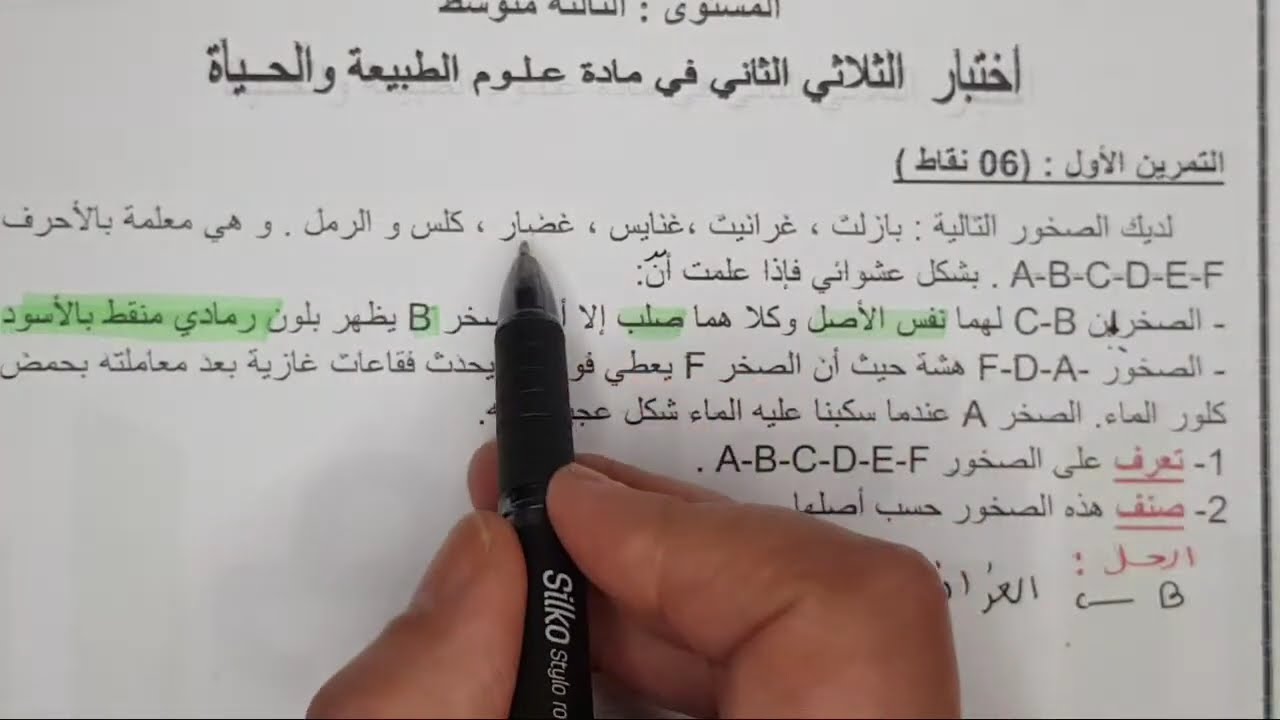 المستوى : الثالثة متوسط
اختبار الثلاثي الثاني في مادة علوم الطبيعة والحياة
التمرين الأول : (06 نقاط )
لديك الصخور التالية : بازلت ، غرانيت ،غنايس ، غضار ، كلس و الرمل . و هي معلمة بالأحرف
A-B-C-D-E-F . بشكل عشوائي فإذا علمت أنّ:
- الصخرين C-B لهما نفس الأصل وكلا هما صلب إلا B يظهر بلون رمادي منقط بالأسود
- الصخور F-D-A- هشة حيث أن الصخر F يعطي يحدث فقاعات غازية بعد معاملته بحمض
كلور الماء. الصخر A عندما سكبنا عليه الماء شكل
1- تعرف على الصخور A-B-C-D-E-F .
2- صنف هذه الصخور حسب أصلها
الحل :
B – C
Silko Stylo